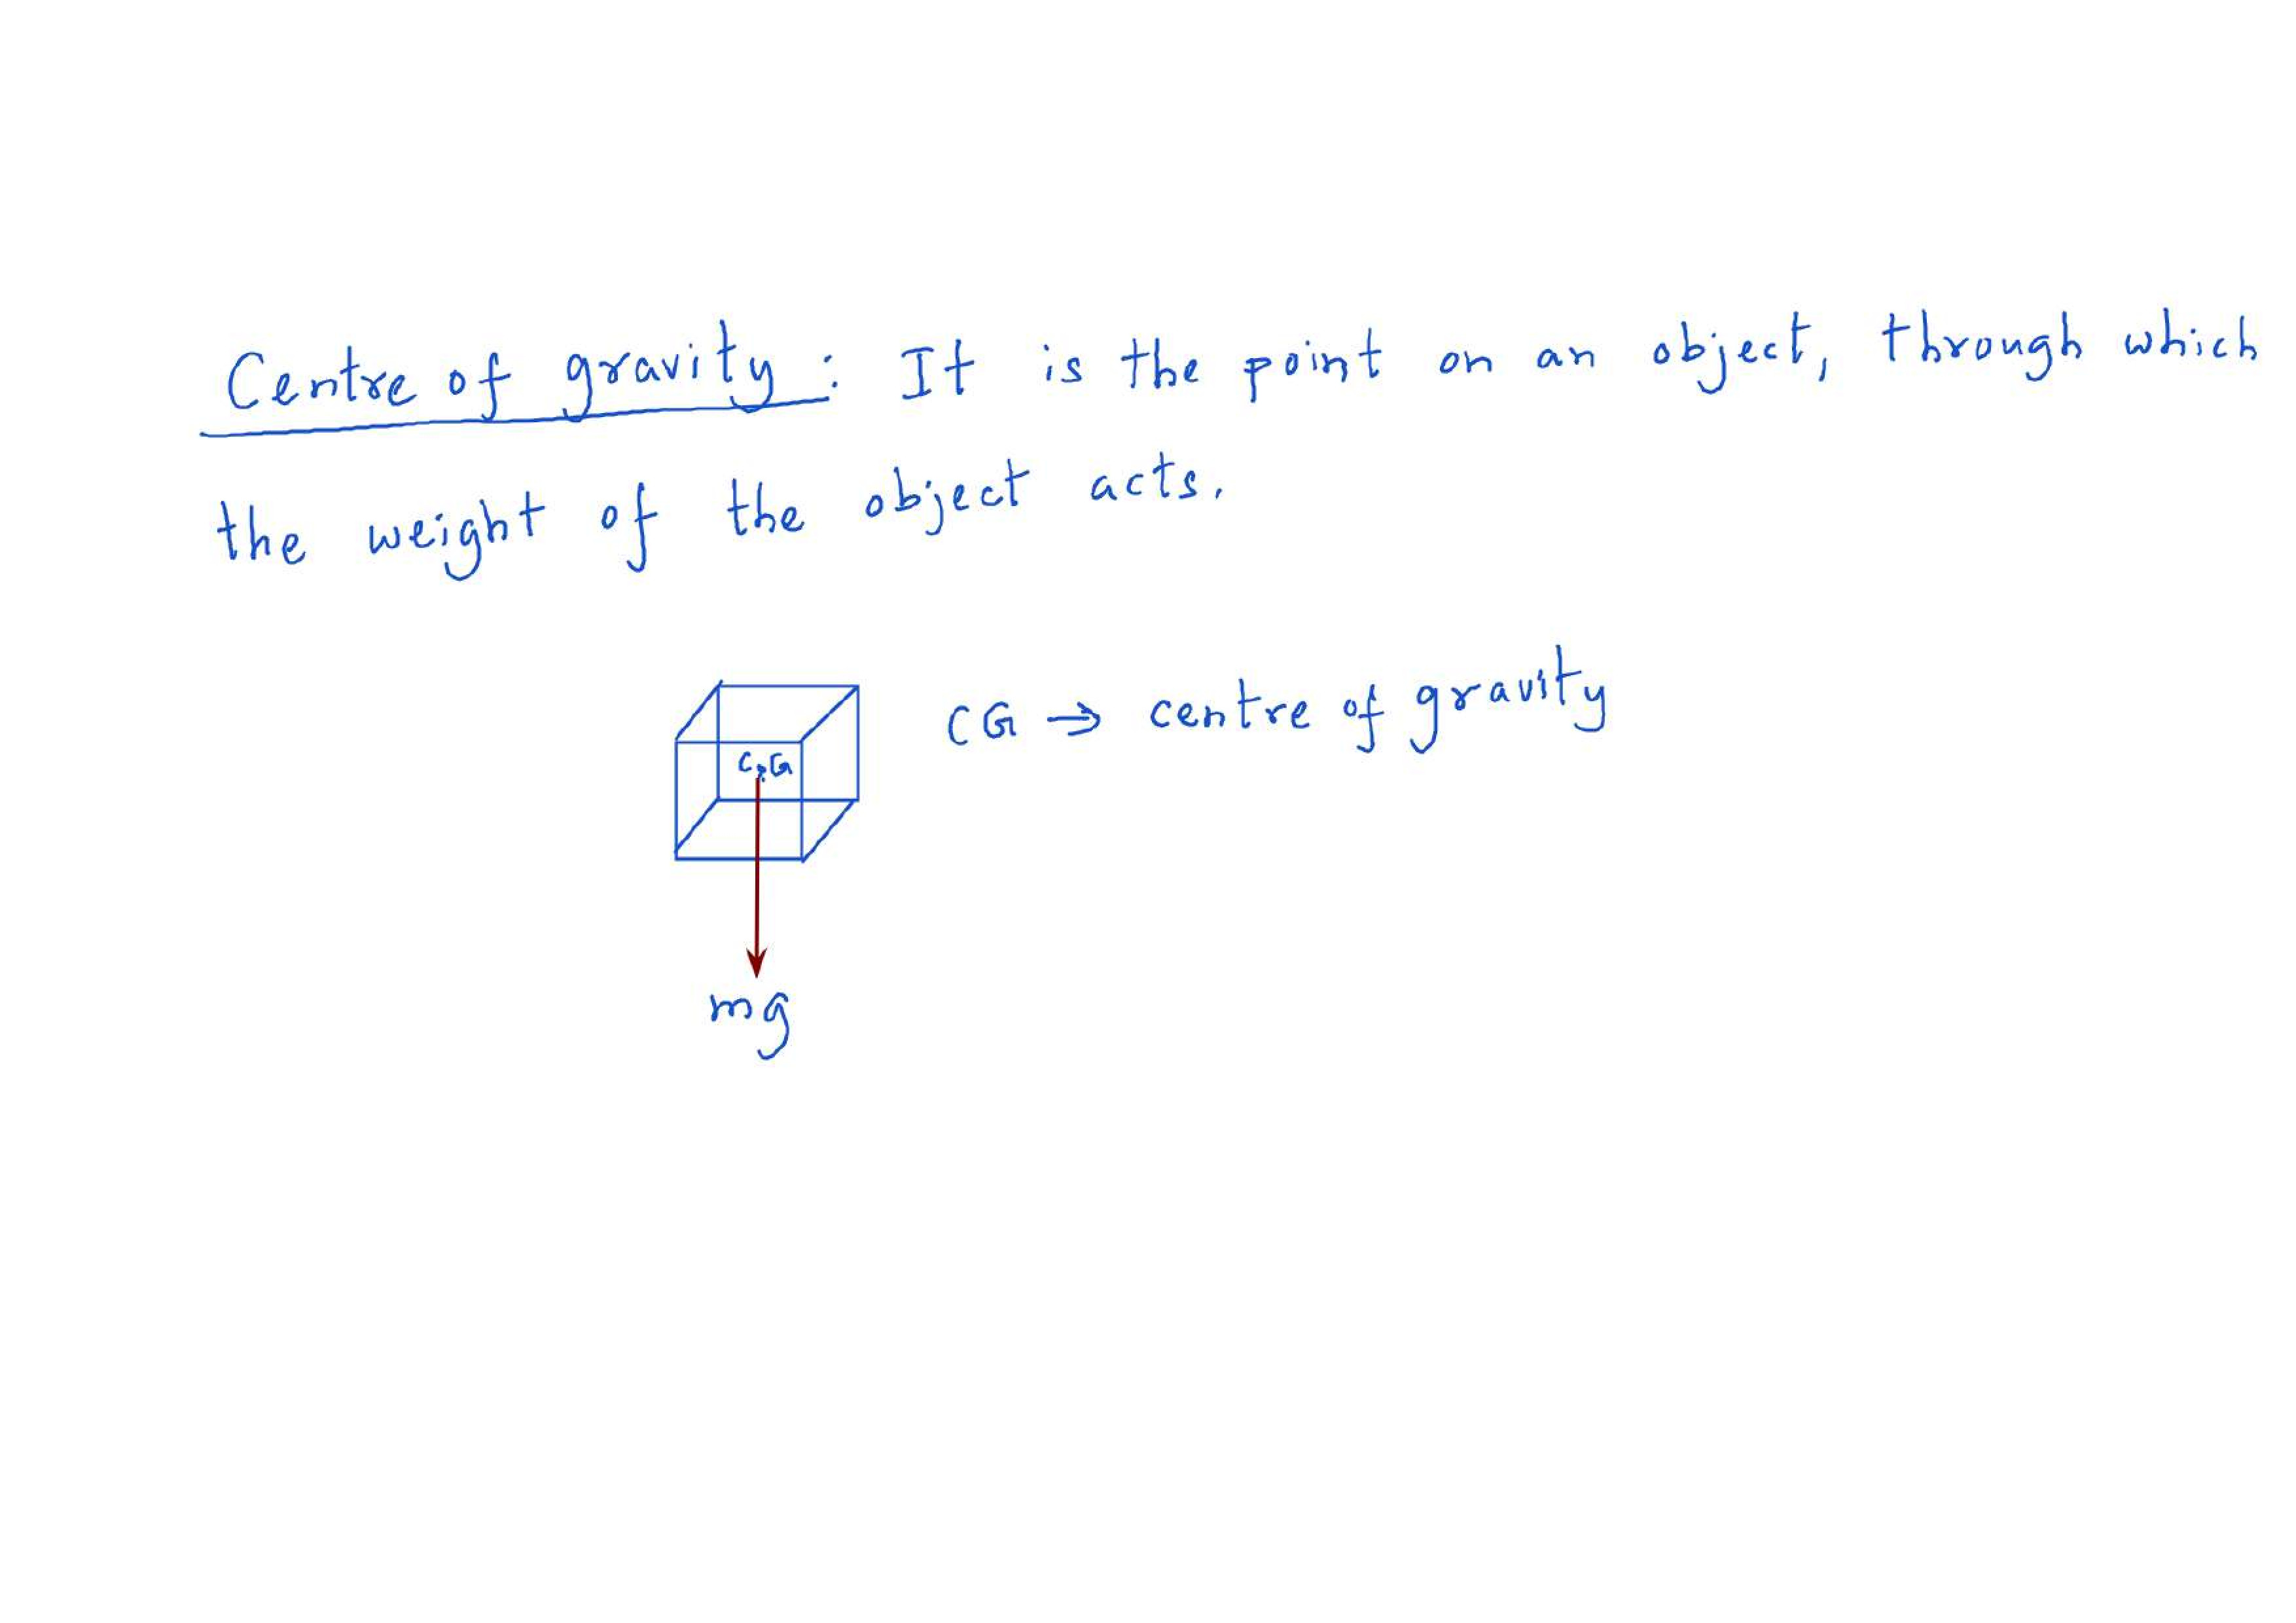 Centre of gravity : It is the point on an object, through which
the weight of the object acts.
CG → centre of gravity
C.G
mg